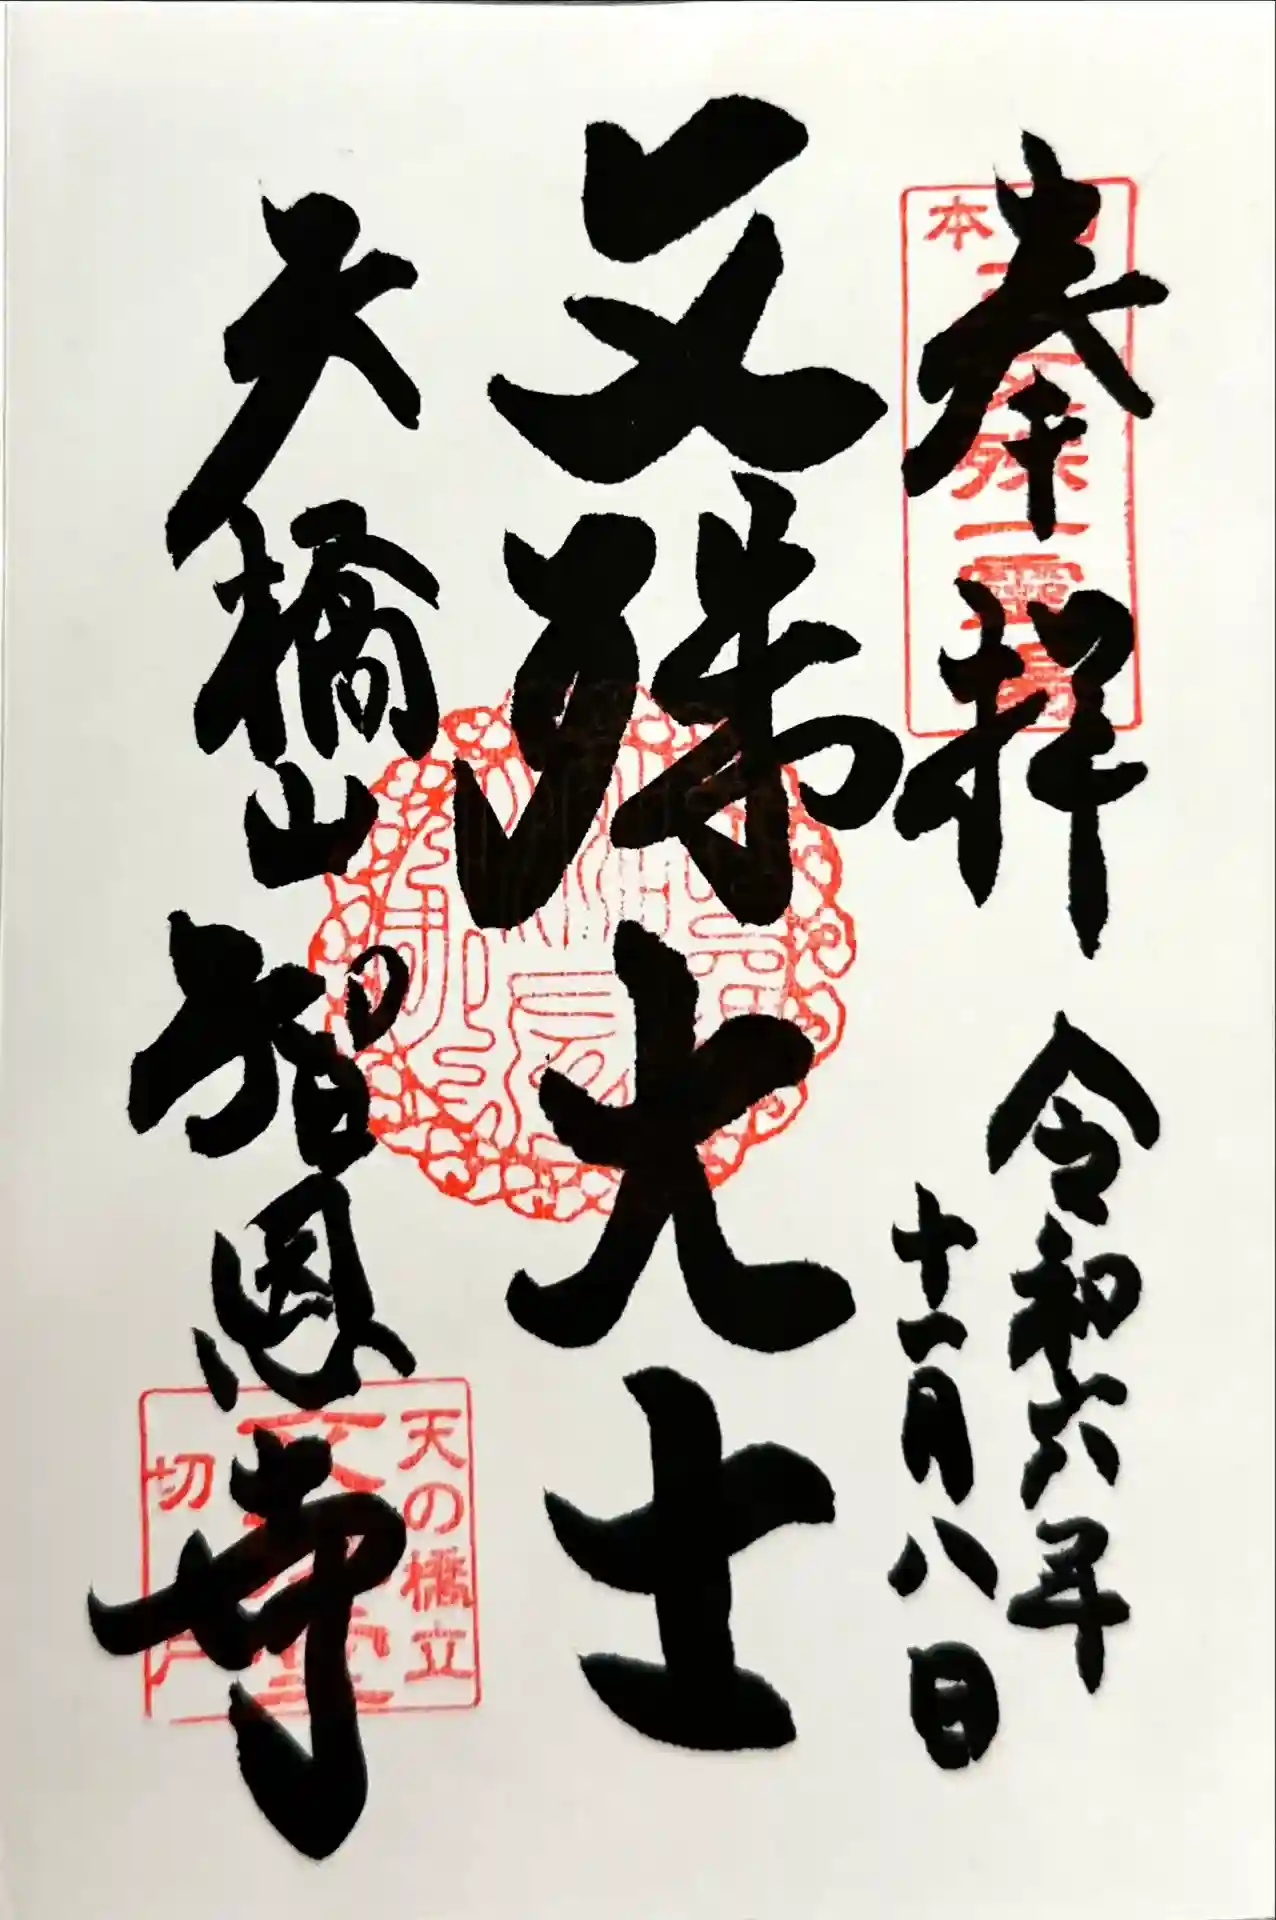 奉拝
令和六年
十一月八日
文殊大士
天橋山智恩寺
本
殊
一霊
天の橋立
文
堂
切戸